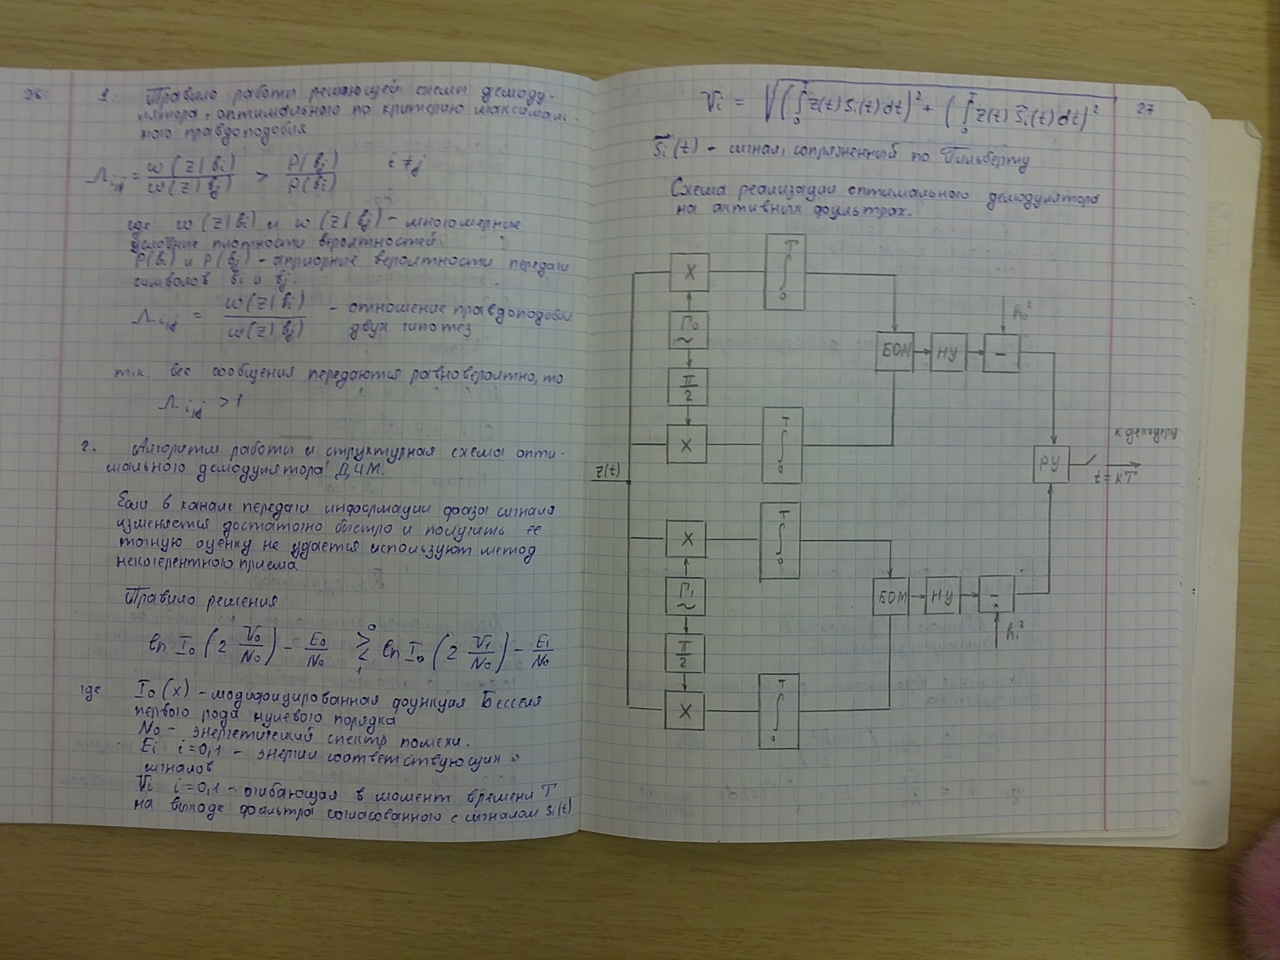 26
1. Правило работы решающей схемы демоду-
лятора, оптимального по критерию максималь-
ного правдоподобия
Λij = w(z|bi) / w(z|bj) > P(bj) / P(bi)   i ≠ j
где w(z|bi) и w(z|bj) - многомерные
условные плотности вероятностей.
P(bi) и P(bj) - априорные вероятности передачи
символов bi и bj.
Λij = w(z|bi) / w(z|bj) - отношение правдоподобия
двух гипотез
т.к. все сообщения передаются равновероятно, то
Λij > 1
2. Алгоритм работы и структурная схема опти-
мального демодулятора ДЧМ.
Если в канале передачи информации фаза сигнала
изменяется достаточно быстро и получить ее
точную оценку не удается используют метод
некогерентного приема
Правило решения
ln I0 (2 V0/N0) - E0/N0 ≷ ln I0 (2 V1/N0) - E1/N0
0
1
где I0(x) - модифицированная функция Бесселя
первого рода нулевого порядка
N0 - энергетический спектр помехи.
Ei i=0,1 - энергии соответствующих
сигналов
Vi i=0,1 - огибающая в момент времени T
на выходе фильтра согласованного с сигналом Si(t)
27
Vi = √((∫0T z(t) Si(t) dt)² + (∫0T z(t) S̃i(t) dt)²)
S̃i(t) - сигнал, сопряженный по Гильберту
Схема реализации оптимального демодулятора
на активных фильтрах.
X
T ∫ 0
h0²
Г0 ~
БОМ
НУ
-
π/2
X
T ∫ 0
к декодеру
z(t)
РУ
t=kT
X
T ∫ 0
Г1 ~
БОМ
НУ
-
h1²
π/2
X
T ∫ 0